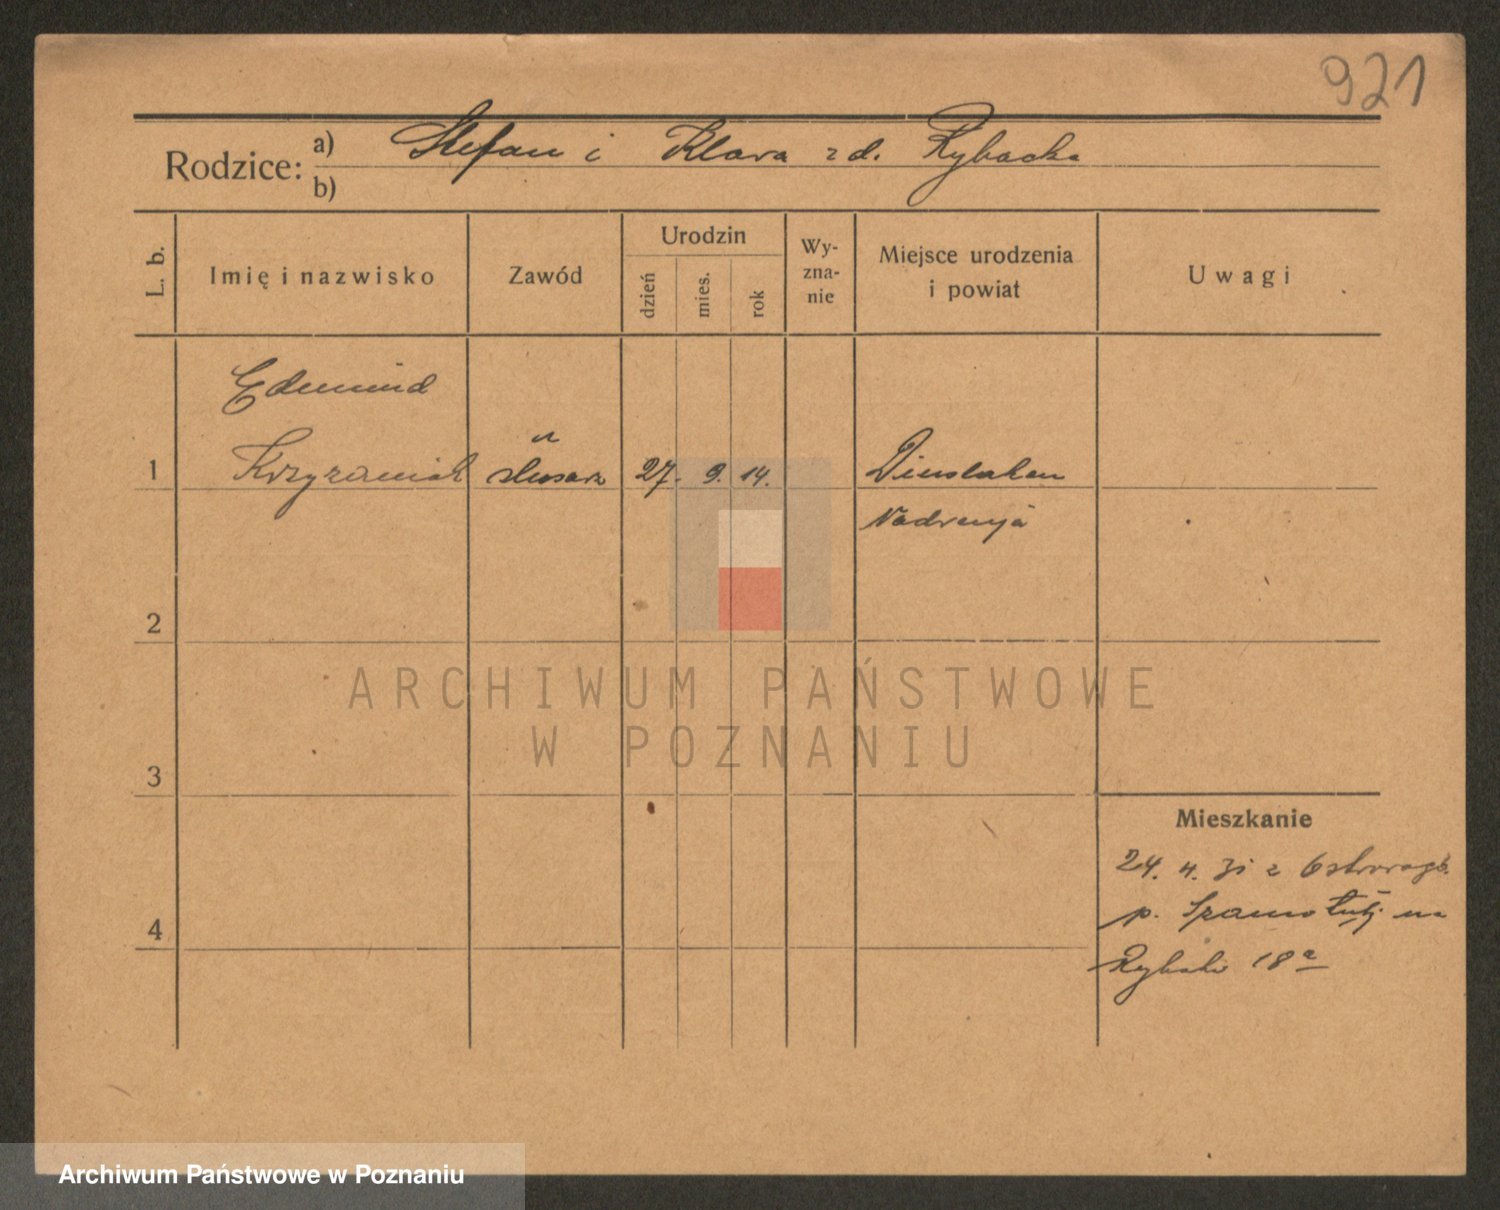 921
Rodzice: a) Stefan i Klara z d. Rybacka
b)
L. b.
Imię i nazwisko
Zawód
Urodzin
dzień
mies.
rok
Wy-
zna-
nie
Miejsce urodzenia
i powiat
Uwagi
Edmund
u
1 Krzyżaniak slusarz 27. 9. 14. Dinslaken
Nadrenja
2
3
4
Mieszkanie
24. 4. 31 z Ostroroga
p. Szamotuły na
Rybaki 18a
ARCHIWUM PAŃSTWOWE
W POZNANIU
Archiwum Państwowe w Poznaniu